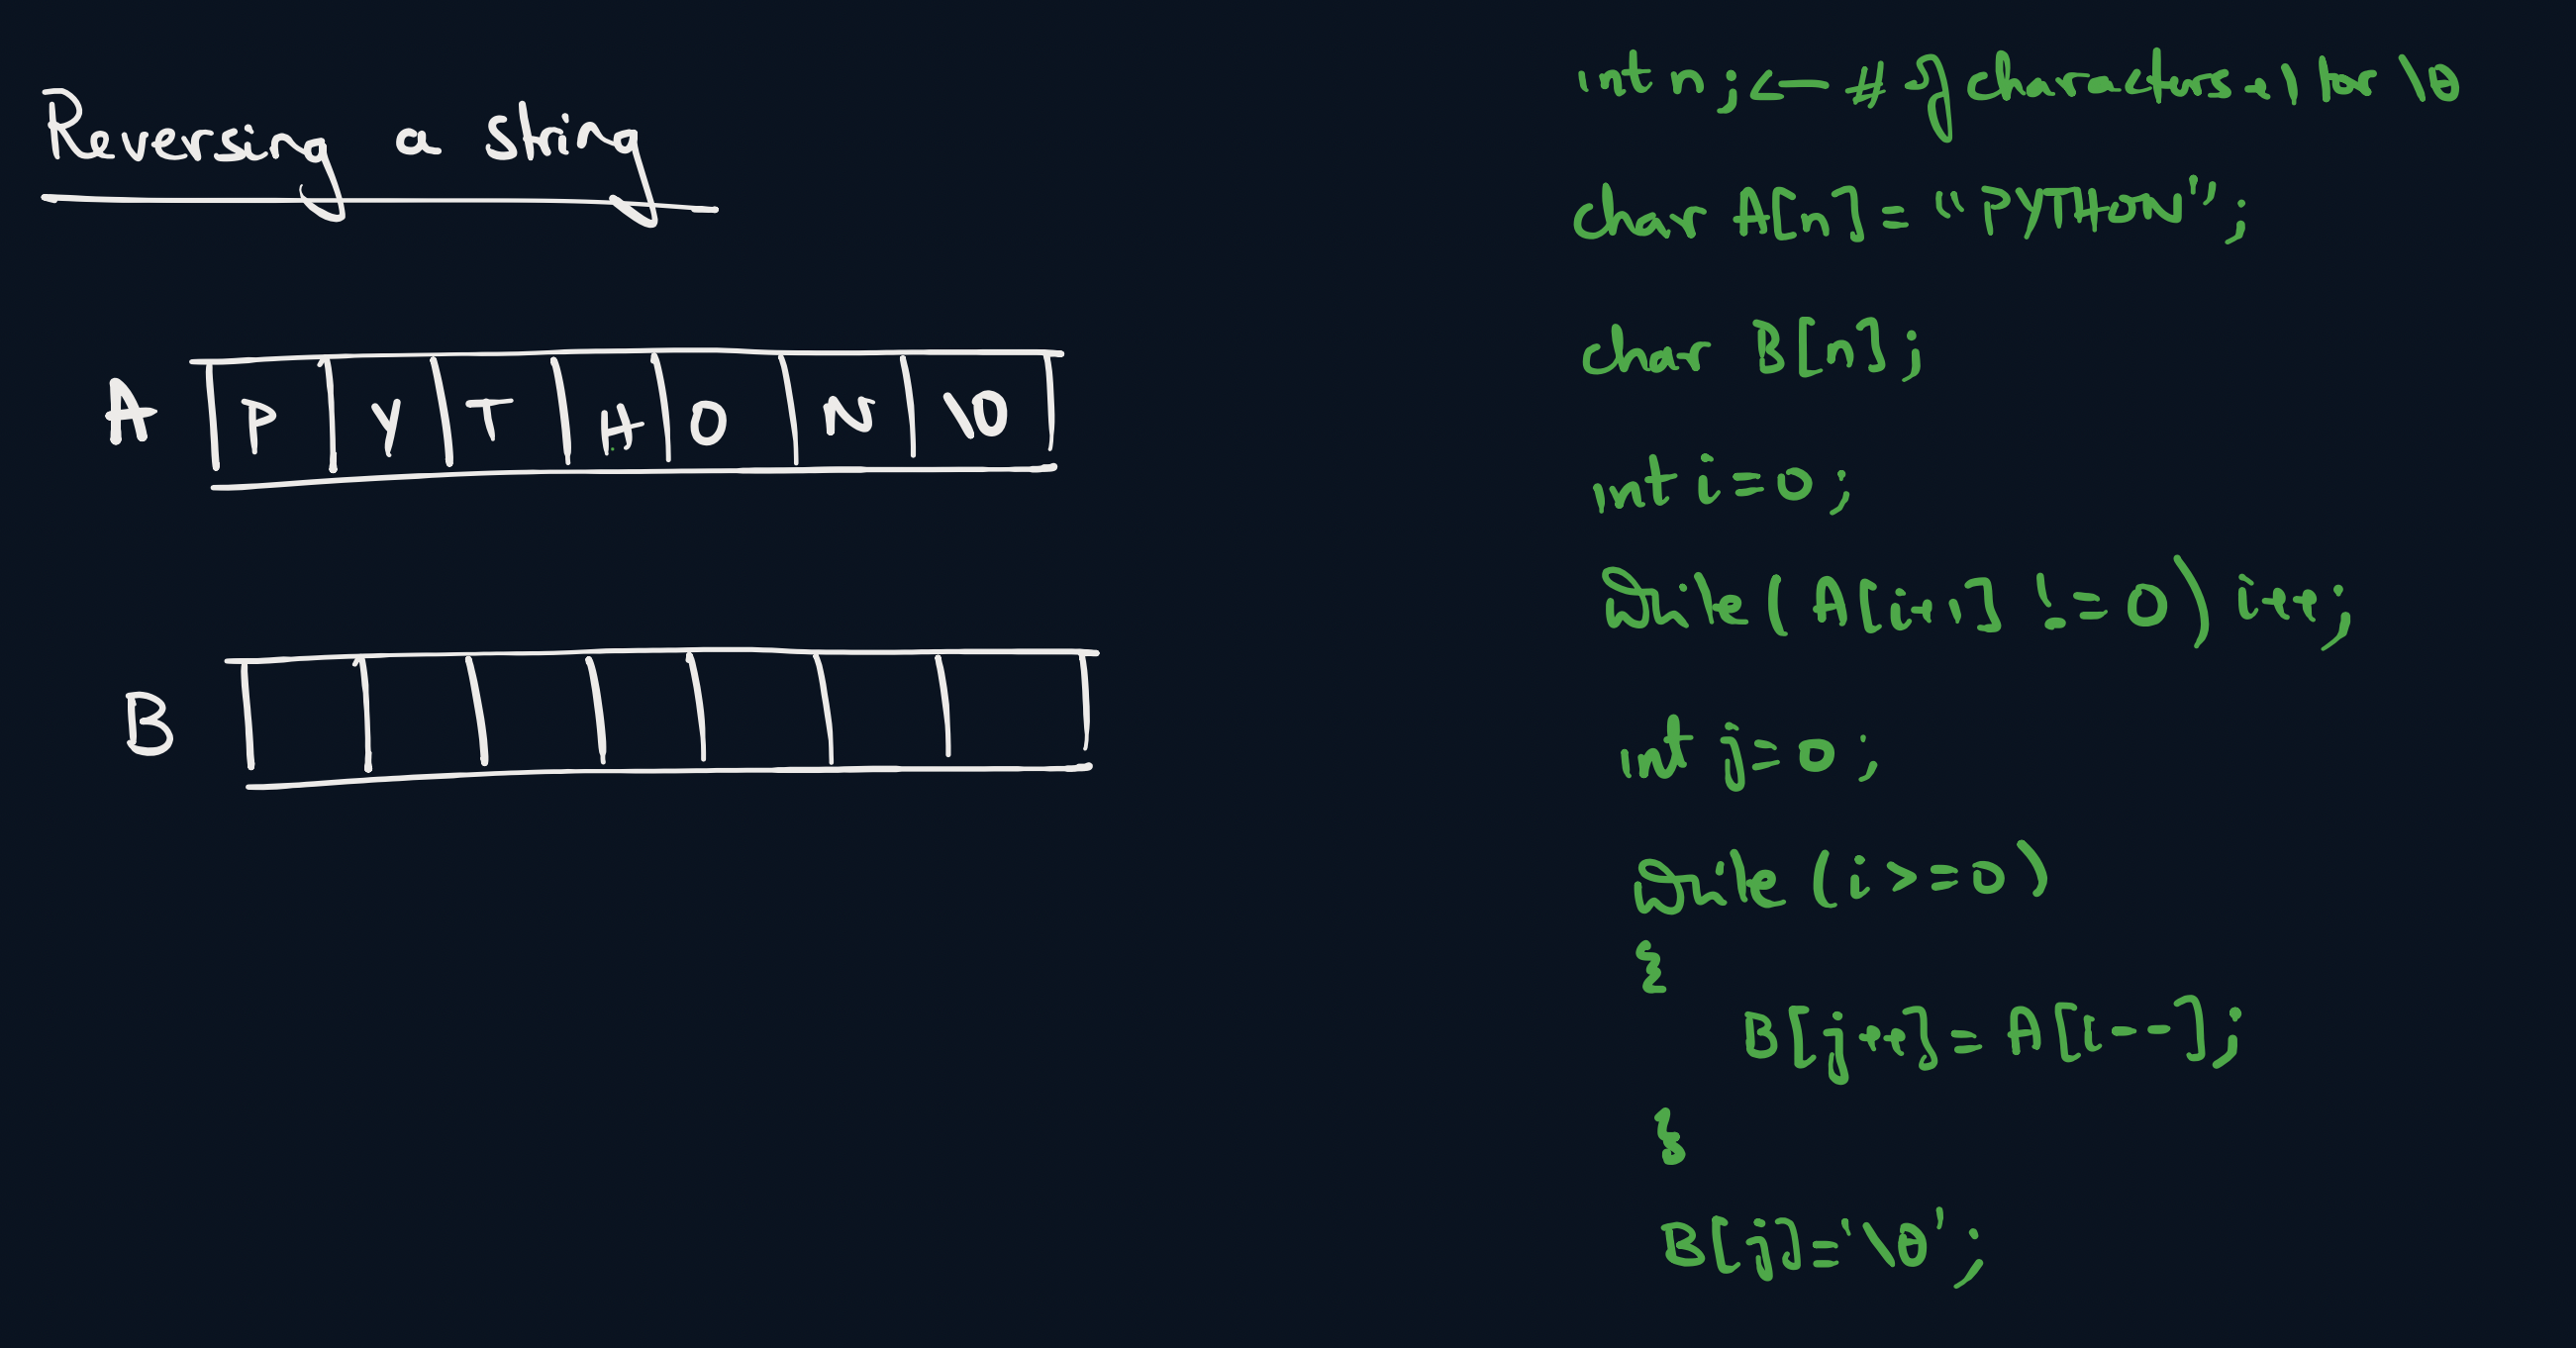 Reversing a string
A P Y T H O N \0
B
int n; <— # of characters +1 for \0
char A[n] = "PYTHON";
char B[n];
int i=0;
while (A[i+1] != 0) i++;
int j=0;
while (i>=0)
{
B[j++] = A[i--];
}
B[j]='\0';